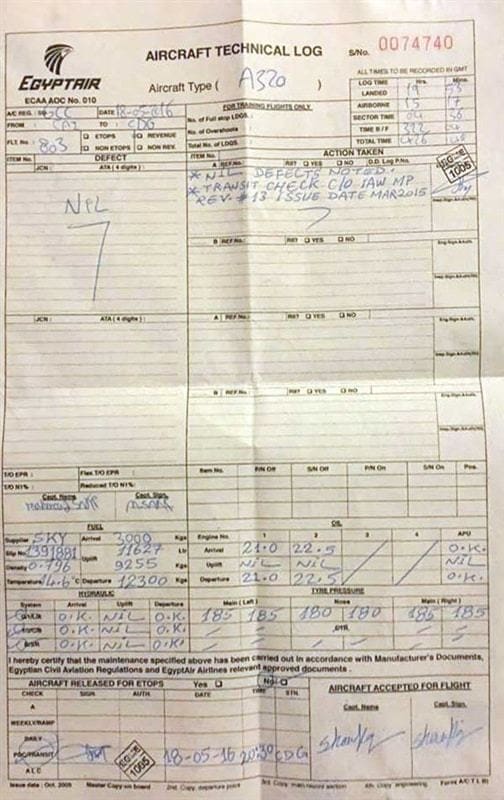 EGYPTAIR
ECAA AOC No. 010
AIRCRAFT TECHNICAL LOG
Aircraft Type ( A320 )
S/No. 0074740
ALL TIMES TO BE RECORDED IN GMT
LOG TIME Hrs. Mins.
LANDED 19 53
AIRBORNE 15 17
SECTOR TIME 04 36
TIME B/F
TOTAL TIME
A/C REG. GCC DATE 18-05-016
FROM : CAI TO : CDG
FLT. No : 803 ETOPS REVENUE
NON ETOPS NON REV.
FOR TRAINING FLIGHTS ONLY
No. of Full stop LDGS. :
No. of Overshoots :
Total No. of LDGS. :
ITEM No. DEFECT ITEM No. ACTION TAKEN
JCN: ATA ( 4 digits ) :
NIL
A REF.No.: RST YES NO D.D. Log P.No.
* NIL DEFECTS NOTED.
* TRANSIT CHECK C/O IAW MP
REV. # 13 ISSUE DATE MAR2015
1005
B REF.No.: RST YES NO
JCN: ATA ( 4 digits ) :
A REF.No.: RST YES NO
B REF.No.: RST YES NO
T/O EPR : Flex T/O EPR :
T/O N1% : Reduced T/O N1% :
Item No. P/N Off S/N Off P/N On S/N On Pos.
Capt. Name Capt. Sign.
FUEL
Supplier SKY Arrival 3000 Kgs
Slip No 1391881 Uplift 11627 Ltr
Density 0.796 9255 Kgs
Temperature 14.6 °C Departure 12300 Kgs
OIL
Engine No. 1 2 3 4 APU
Arrival 21.0 22.5 O.K.
Uplift NIL NIL NIL
Departure 21.0 22.5 O.K.
HYDRAULIC
System Arrival Uplift Departure
O.K. NIL O.K.
O.K. NIL O.K.
O.K. NIL O.K.
TYRE PRESSURE
Main ( Left ) Nose Main ( Right )
185 185 180 180 185 185
I hereby certify that the maintenance specified above has been carried out in accordance with Manufacturer's Documents,
Egyptian Civil Aviation Regulations and EgyptAir Airlines relevant approved documents .
AIRCRAFT RELEASED FOR ETOPS Yes No
CHECK SIGN. AUTH. DATE TIME STN.
A
WEEKLY/RAMP
DAILY
PDC/TRANSIT 1005 18-05-16 20:30 CDG
A L C
AIRCRAFT ACCEPTED FOR FLIGHT
Capt. Name Capt. Sign.
Issue date : Oct. 2005 Master Copy on board 2nd. Copy. departure point 3rd. Copy. main record section 4th. Copy. engineering